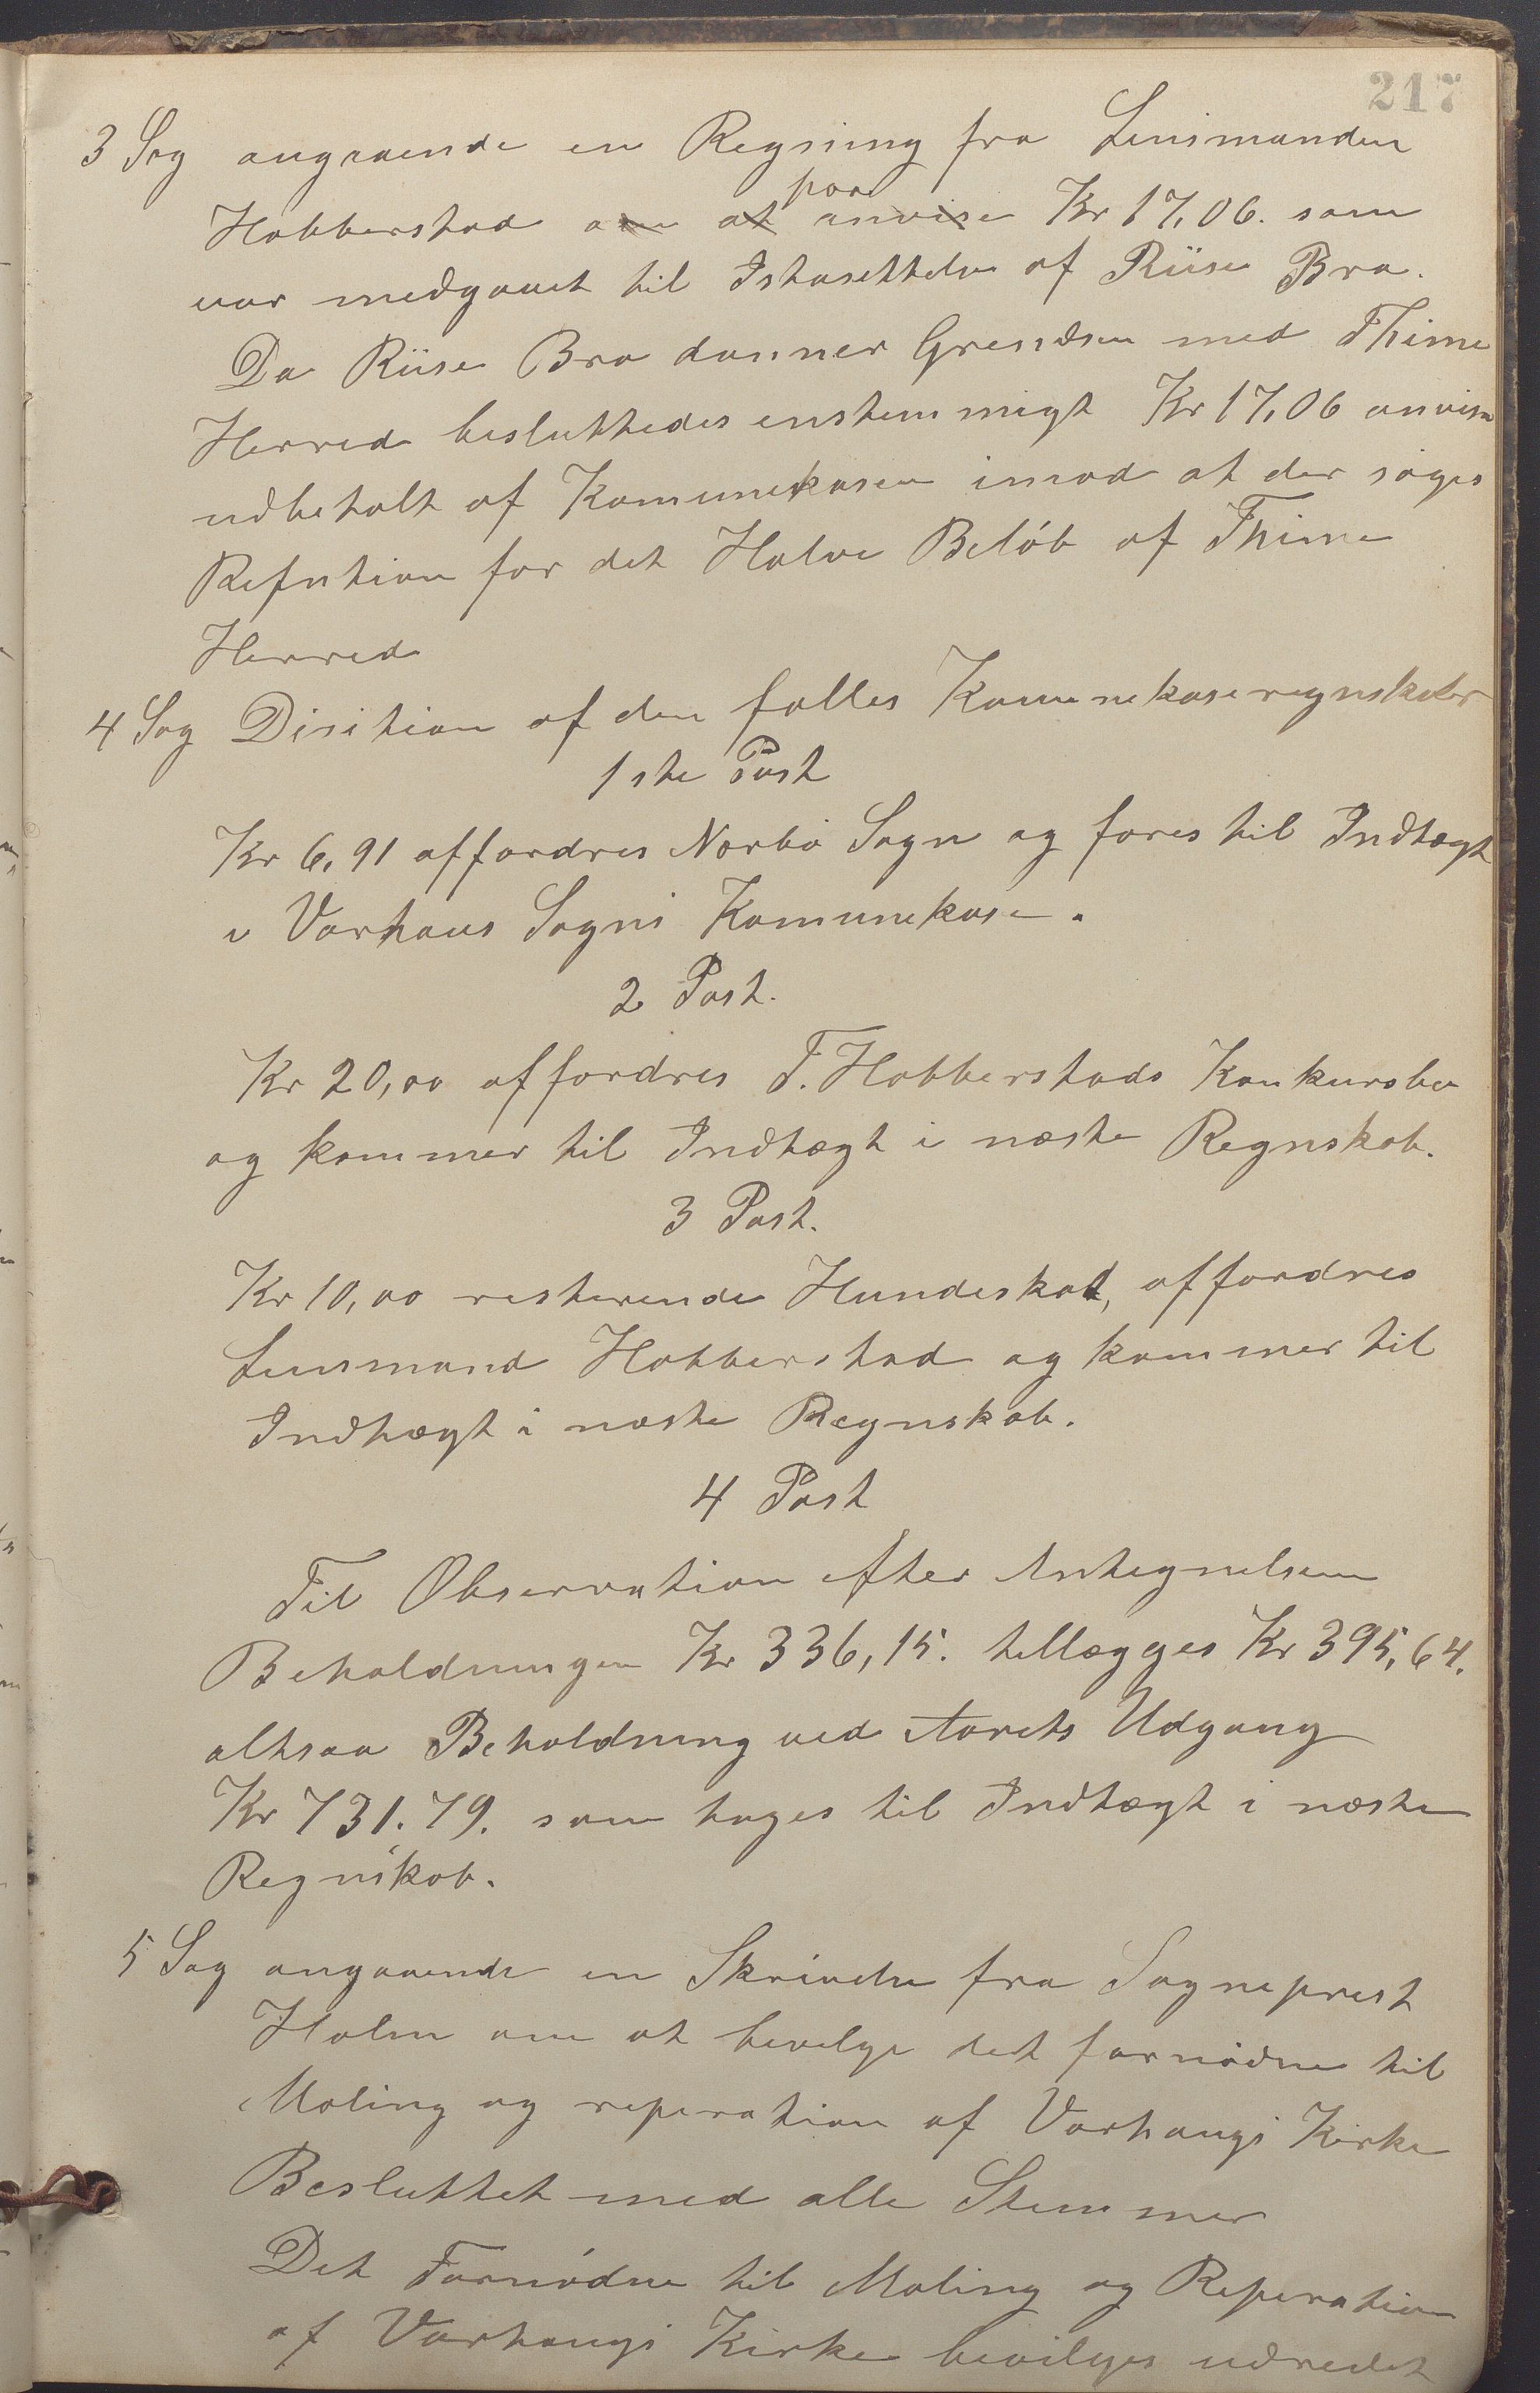 217
3 Sag angaaende en Regning fra Lensmanden
paa
Hobberstad om at anvise Kr 17,06. som
var medgaaet til Istasettelse af Riise Bro.
Da Riise Bro danner Grendsen med Thime
Herred besluttedes enstemmigt Kr 17,06 anvise
udbetalt af Komunekasen imod at der søges
Refution for det Halve Beløb af Thime
Herred
4 Sag Disition af den falles Komunekaseregnskaber
1ste Post
Kr 6,91 affordres Nærbø Sogn og føres til Indtægt
i Varhaus Sogns Komunekase.
2 Post.
Kr 20,00 affordres T. Hobberstads Konkursbo
og kommer til Indtægt i næste Regnskab.
3 Post.
Kr 10,00 resterende Hundeskat, affordres
Lensmand Hobberstad og kommer til
Indtægt i næste Regnskab.
4 Post
Til Observation efter Antegnelsen
Beholdningen Kr 336,15. tellægges Kr 395,64.
altsaa Beholdning ved Aarets Udgang
Kr 731.79. som tages til Indtægt i næste
Regnskab.
5 Sag angaaende en Skrivelse fra Sogneprest
Holm om at bevilge det fornødne til
Maling og reperation af Varhaugs Kirke
Besluttet med alle Stemmer
Det Fornødne til Maling og Reperation
af Varhaugs Kirke bevilges udredet